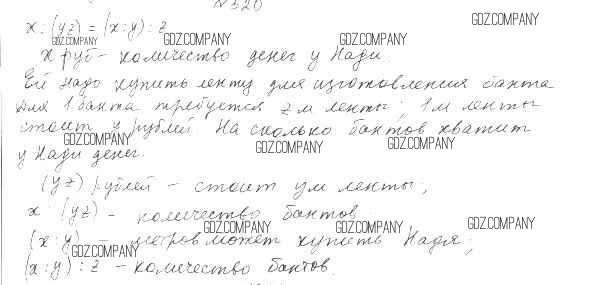 № 320
x : (yz) = (x:y) : z
GDZ.COMPANY GDZ.COMPANY GDZ.COMPANY GDZ.COMPANY
x руб – количество денег у Нади.
Ей надо купить ленту для изготовления банта
Для 1 банта требуется z м ленты; 1 м ленты
стоит y рублей. На сколько бантов хватит
GDZ.COMPANY GDZ.COMPANY GDZ.COMPANY
у Нади денег.
(yz) рублей – стоит ум ленты;
x : (yz) – количество бантов
GDZ.COMPANY GDZ.COMPANY GDZ.COMPANY
(x:y) – метров может купить Надя;
GDZ.COMPANY
(x:y) : z – количество бантов.